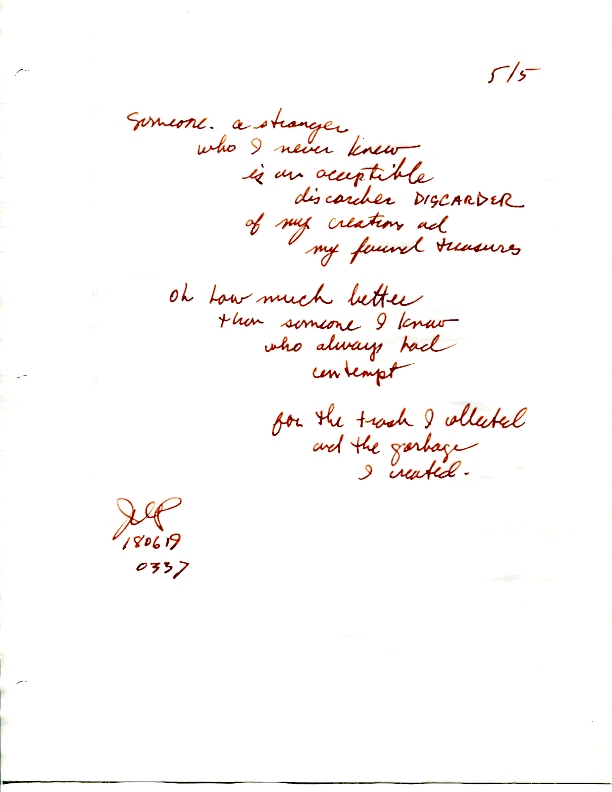 5/5
Someone. a stranger
who I never knew
is an acceptible
discarder DISCARDER
of my creations ad
my found treasures
oh how much better
than someone I know
who always had
contempt
for the trash I collected
and the garbage
I created.
180619
0337